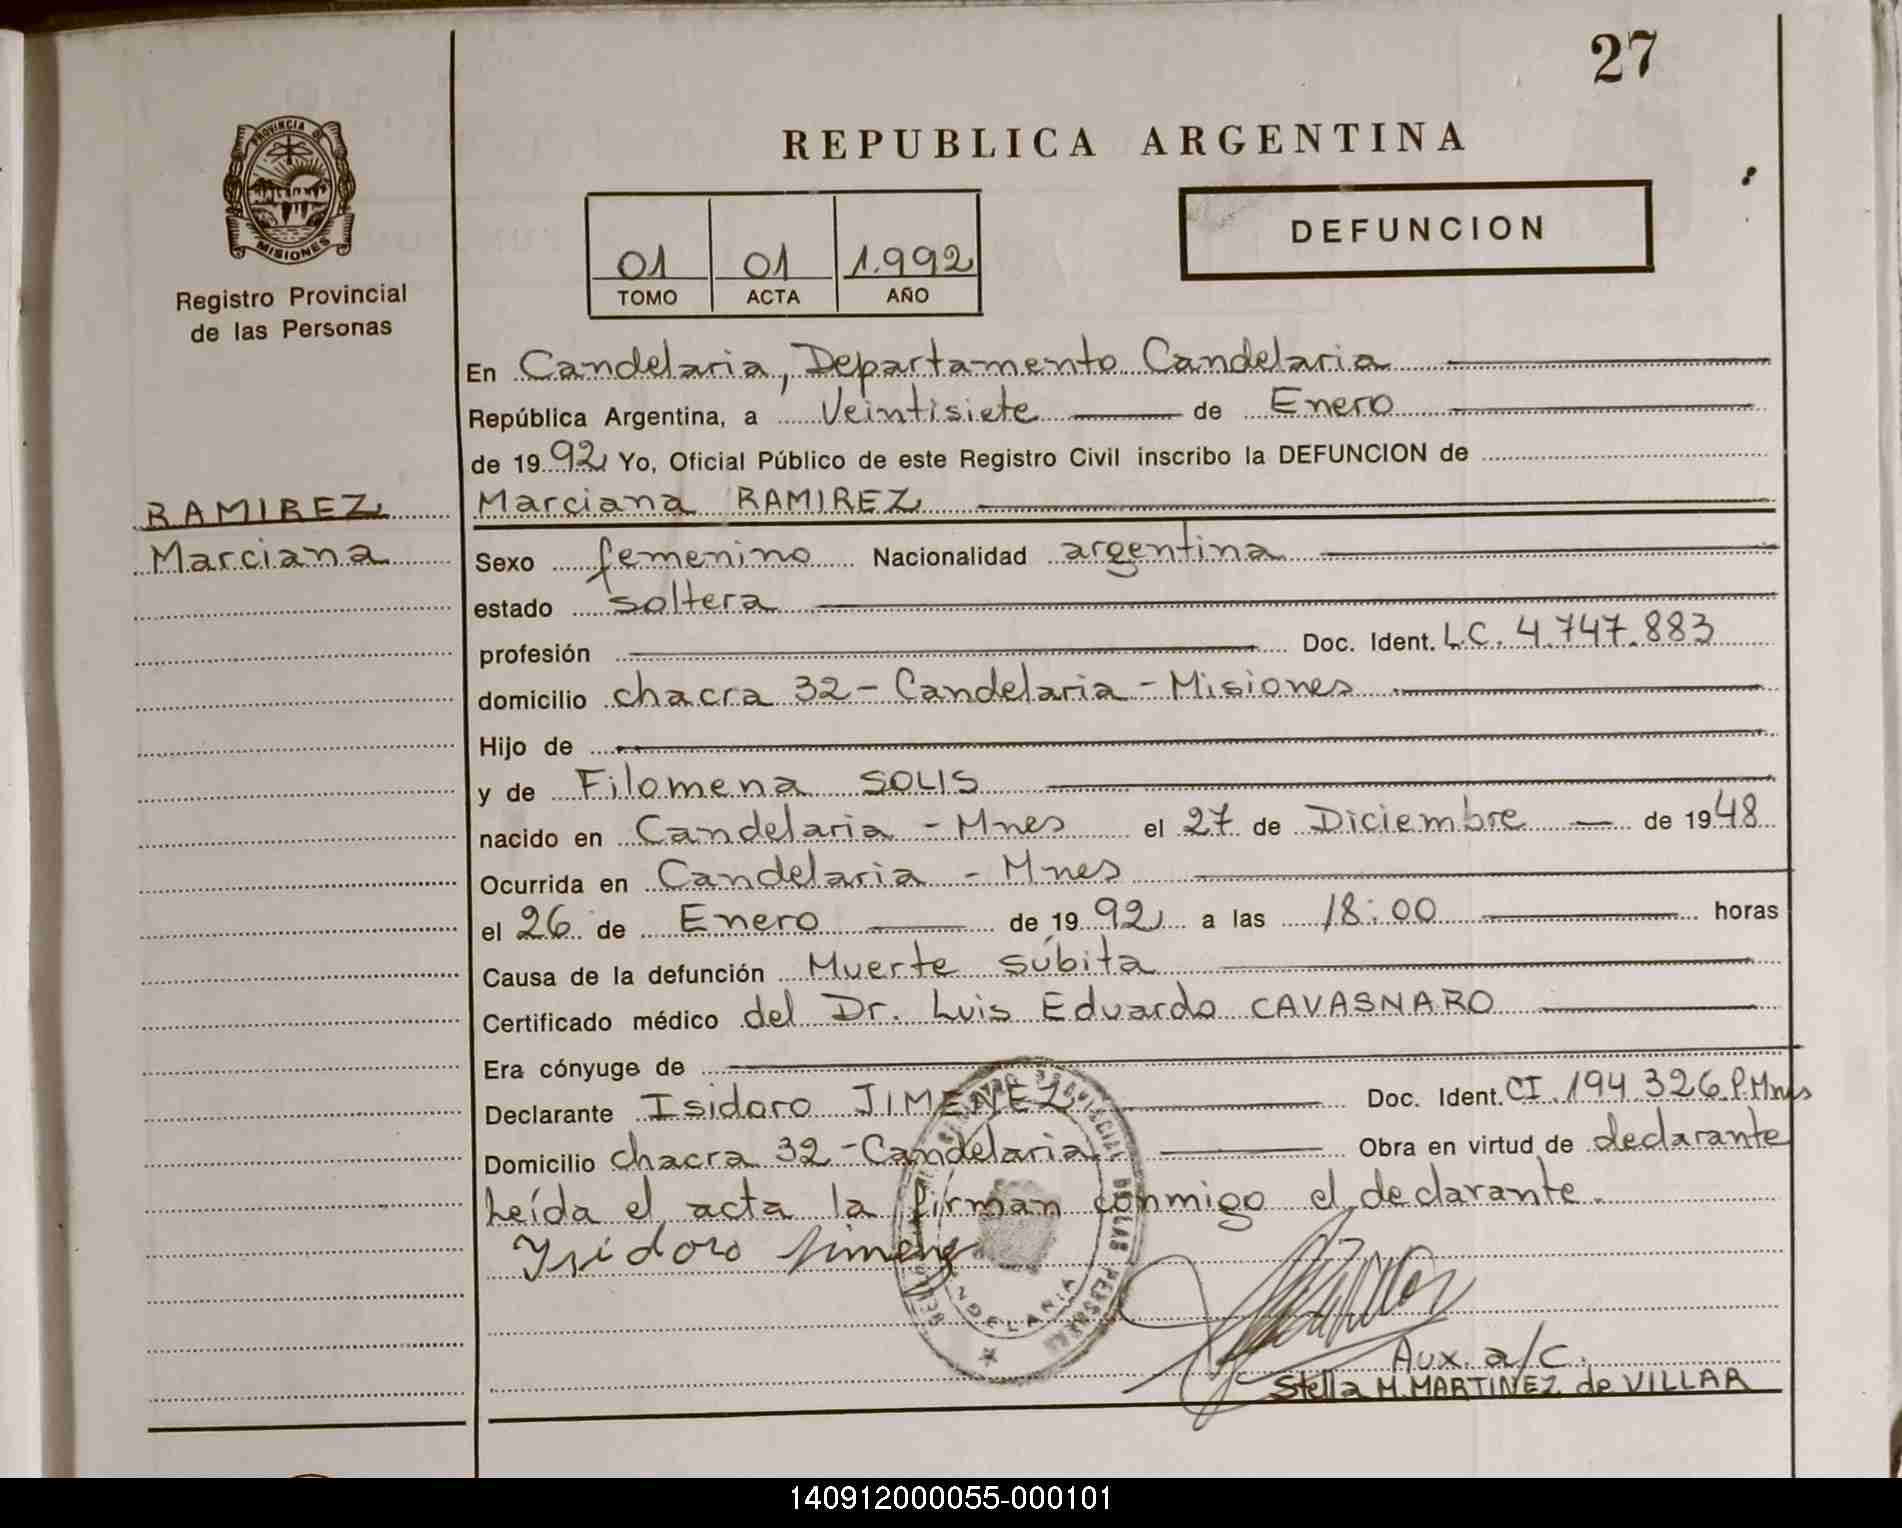 27
PROVINCIA DE
MISIONES
Registro Provincial
de las Personas
REPUBLICA ARGENTINA
01 01 1.992
TOMO ACTA AÑO
DEFUNCION
En Candelaria, Departamento Candelaria
República Argentina, a Veintisiete de Enero
de 1992 Yo, Oficial Público de este Registro Civil inscribo la DEFUNCION de
RAMIREZ
Marciana
Marciana RAMIREZ
Sexo femenino Nacionalidad argentina
estado soltera
profesión Doc. Ident. L.C. 4.747.883
domicilio chacra 32 - Candelaria - Misiones
Hijo de
y de Filomena SOLIS
nacido en Candelaria - Mnes el 27 de Diciembre de 1948
Ocurrida en Candelaria - Mnes
el 26 de Enero de 1992 a las 18:00 horas
Causa de la defunción Muerte súbita
Certificado médico del Dr. Luis Eduardo CAVASNARO
Era cónyuge de
Declarante Isidoro JIMENEZ Doc. Ident. CI. 194.326 P.Mnes
Domicilio chacra 32 - Candelaria Obra en virtud de declarante
Leída el acta la firman conmigo el declarante.
Ysidoro Jimenez
REGISTRO PROVINCIAL DE LAS PERSONAS
CANDELARIA
Aux. a/c.
Stella M. MARTINEZ de VILLAR
140912000055-000101